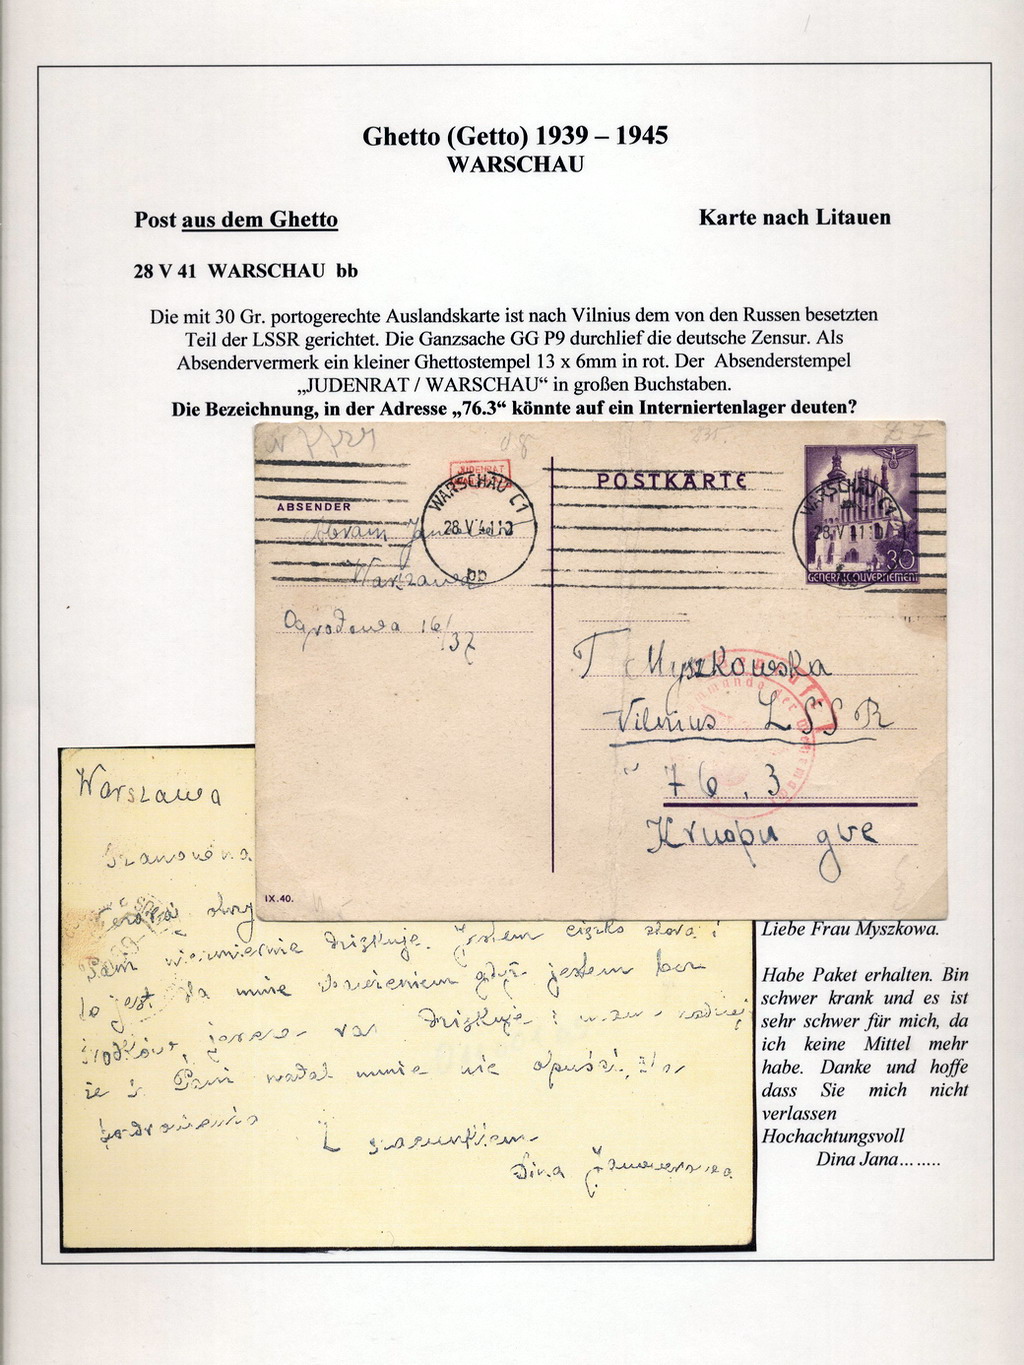 Ghetto (Getto) 1939 – 1945
WARSCHAU
Post aus dem Ghetto
Karte nach Litauen
28 V 41 WARSCHAU bb
Die mit 30 Gr. portogerechte Auslandskarte ist nach Vilnius dem von den Russen besetzten
Teil der LSSR gerichtet. Die Ganzsache GG P9 durchlief die deutsche Zensur. Als
Absendervermerk ein kleiner Ghettostempel 13 x 6mm in rot. Der Absenderstempel
„JUDENRAT / WARSCHAU“ in großen Buchstaben.
Die Bezeichnung, in der Adresse „76.3“ könnte auf ein Interniertenlager deuten?
JUDENRAT
WARSCHAU C1
28.V.41
bb
ABSENDER
Abram
Warszawa
Ogrodowa 16/37
IX.40.
POSTKARTE
WARSCHAU C1
28.V
30
GENERALGOUVERNEMENT
T Myszkowska
Vilnius LSSR
76, 3
Kruopu gve
Warszawa
Pani niezmiernie dziękuję. Jestem ciężko chora i
to jest dla mnie gdyż jestem bez
środków, jeszcze raz dziękuję i
że Pani nadal mnie nie opuści.
Z szacunkiem
Dina
Liebe Frau Myszkowa.
Habe Paket erhalten. Bin
schwer krank und es ist
sehr schwer für mich, da
ich keine Mittel mehr
habe. Danke und hoffe
dass Sie mich nicht
verlassen
Hochachtungsvoll
Dina Jana........